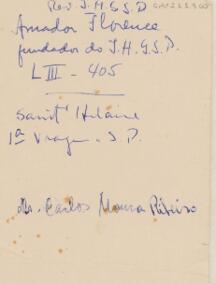 Rev J.H.G.S.D
Amador Florence
fundador do I.H.G.S.P.
L III - 405
Saint Hilaire
1ª Viagem - S.P.
Dr. Carlos Moura Ribeiro